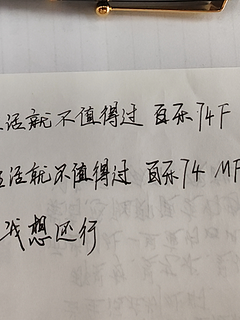 活就不值得过 百乐74F
活就不值得过 百乐74 MF
我想还行